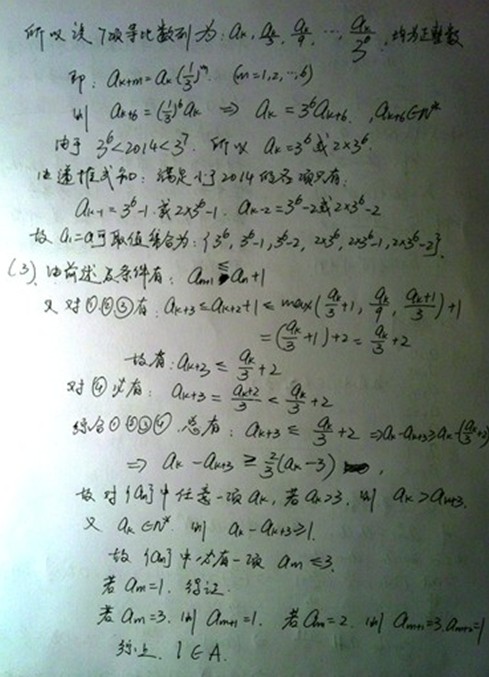 所以该7项等比数列为: aₖ, aₖ/3, aₖ/9, …, aₖ/3⁶, 均为正整数
即: aₖ₊ₘ = aₖ(1/3)ᵐ (m=1,2,…,6)
则 aₖ₊₆ = (1/3)⁶aₖ ⇒ aₖ = 3⁶aₖ₊₆. , aₖ₊₆∈N*
由于 3⁶<2014<3⁷. 所以 aₖ=3⁶或2×3⁶.
由递推式知: 满足小于2014的各项只有:
aₖ₋₁=3⁶-1.或2×3⁶-1. aₖ₋₂=3⁶-2或2×3⁶-2
故 a₁=a可取值集合为: {3⁶, 3⁶-1, 3⁶-2, 2×3⁶, 2×3⁶-1, 2×3⁶-2}.
(3). 由前述及条件有: aₙ₊₁ ≤ aₙ+1
又对①②③有: aₖ₊₃ ≤ aₖ₊₂+1 ≤ max(aₖ/3+1, aₖ/9, (aₖ+1)/3)+1
= (aₖ/3+1)+2 = aₖ/3+2
故有: aₖ₊₃ ≤ aₖ/3+2
对④必有: aₖ₊₃ = aₖ₊₂/3 < aₖ/3+2
综合①②③④, 总有: aₖ₊₃ ≤ aₖ/3+2 ⇒ aₖ-aₖ₊₃≥aₖ-(aₖ/3+2)
⇒ aₖ-aₖ₊₃ ≥ 2/3(aₖ-3) ,
故对{aₙ}中任意一项aₖ, 若aₖ>3, 则 aₖ>aₖ₊₃.
又 aₖ∈N*. 则 aₖ-aₖ₊₃≥1.
故{aₙ}中必有一项 aₘ≤3.
若aₘ=1. 得证.
若aₘ=3, 则aₘ₊₁=1. 若aₘ=2. 则 aₘ₊₁=3, aₘ₊₂=1
综上. 1∈A.